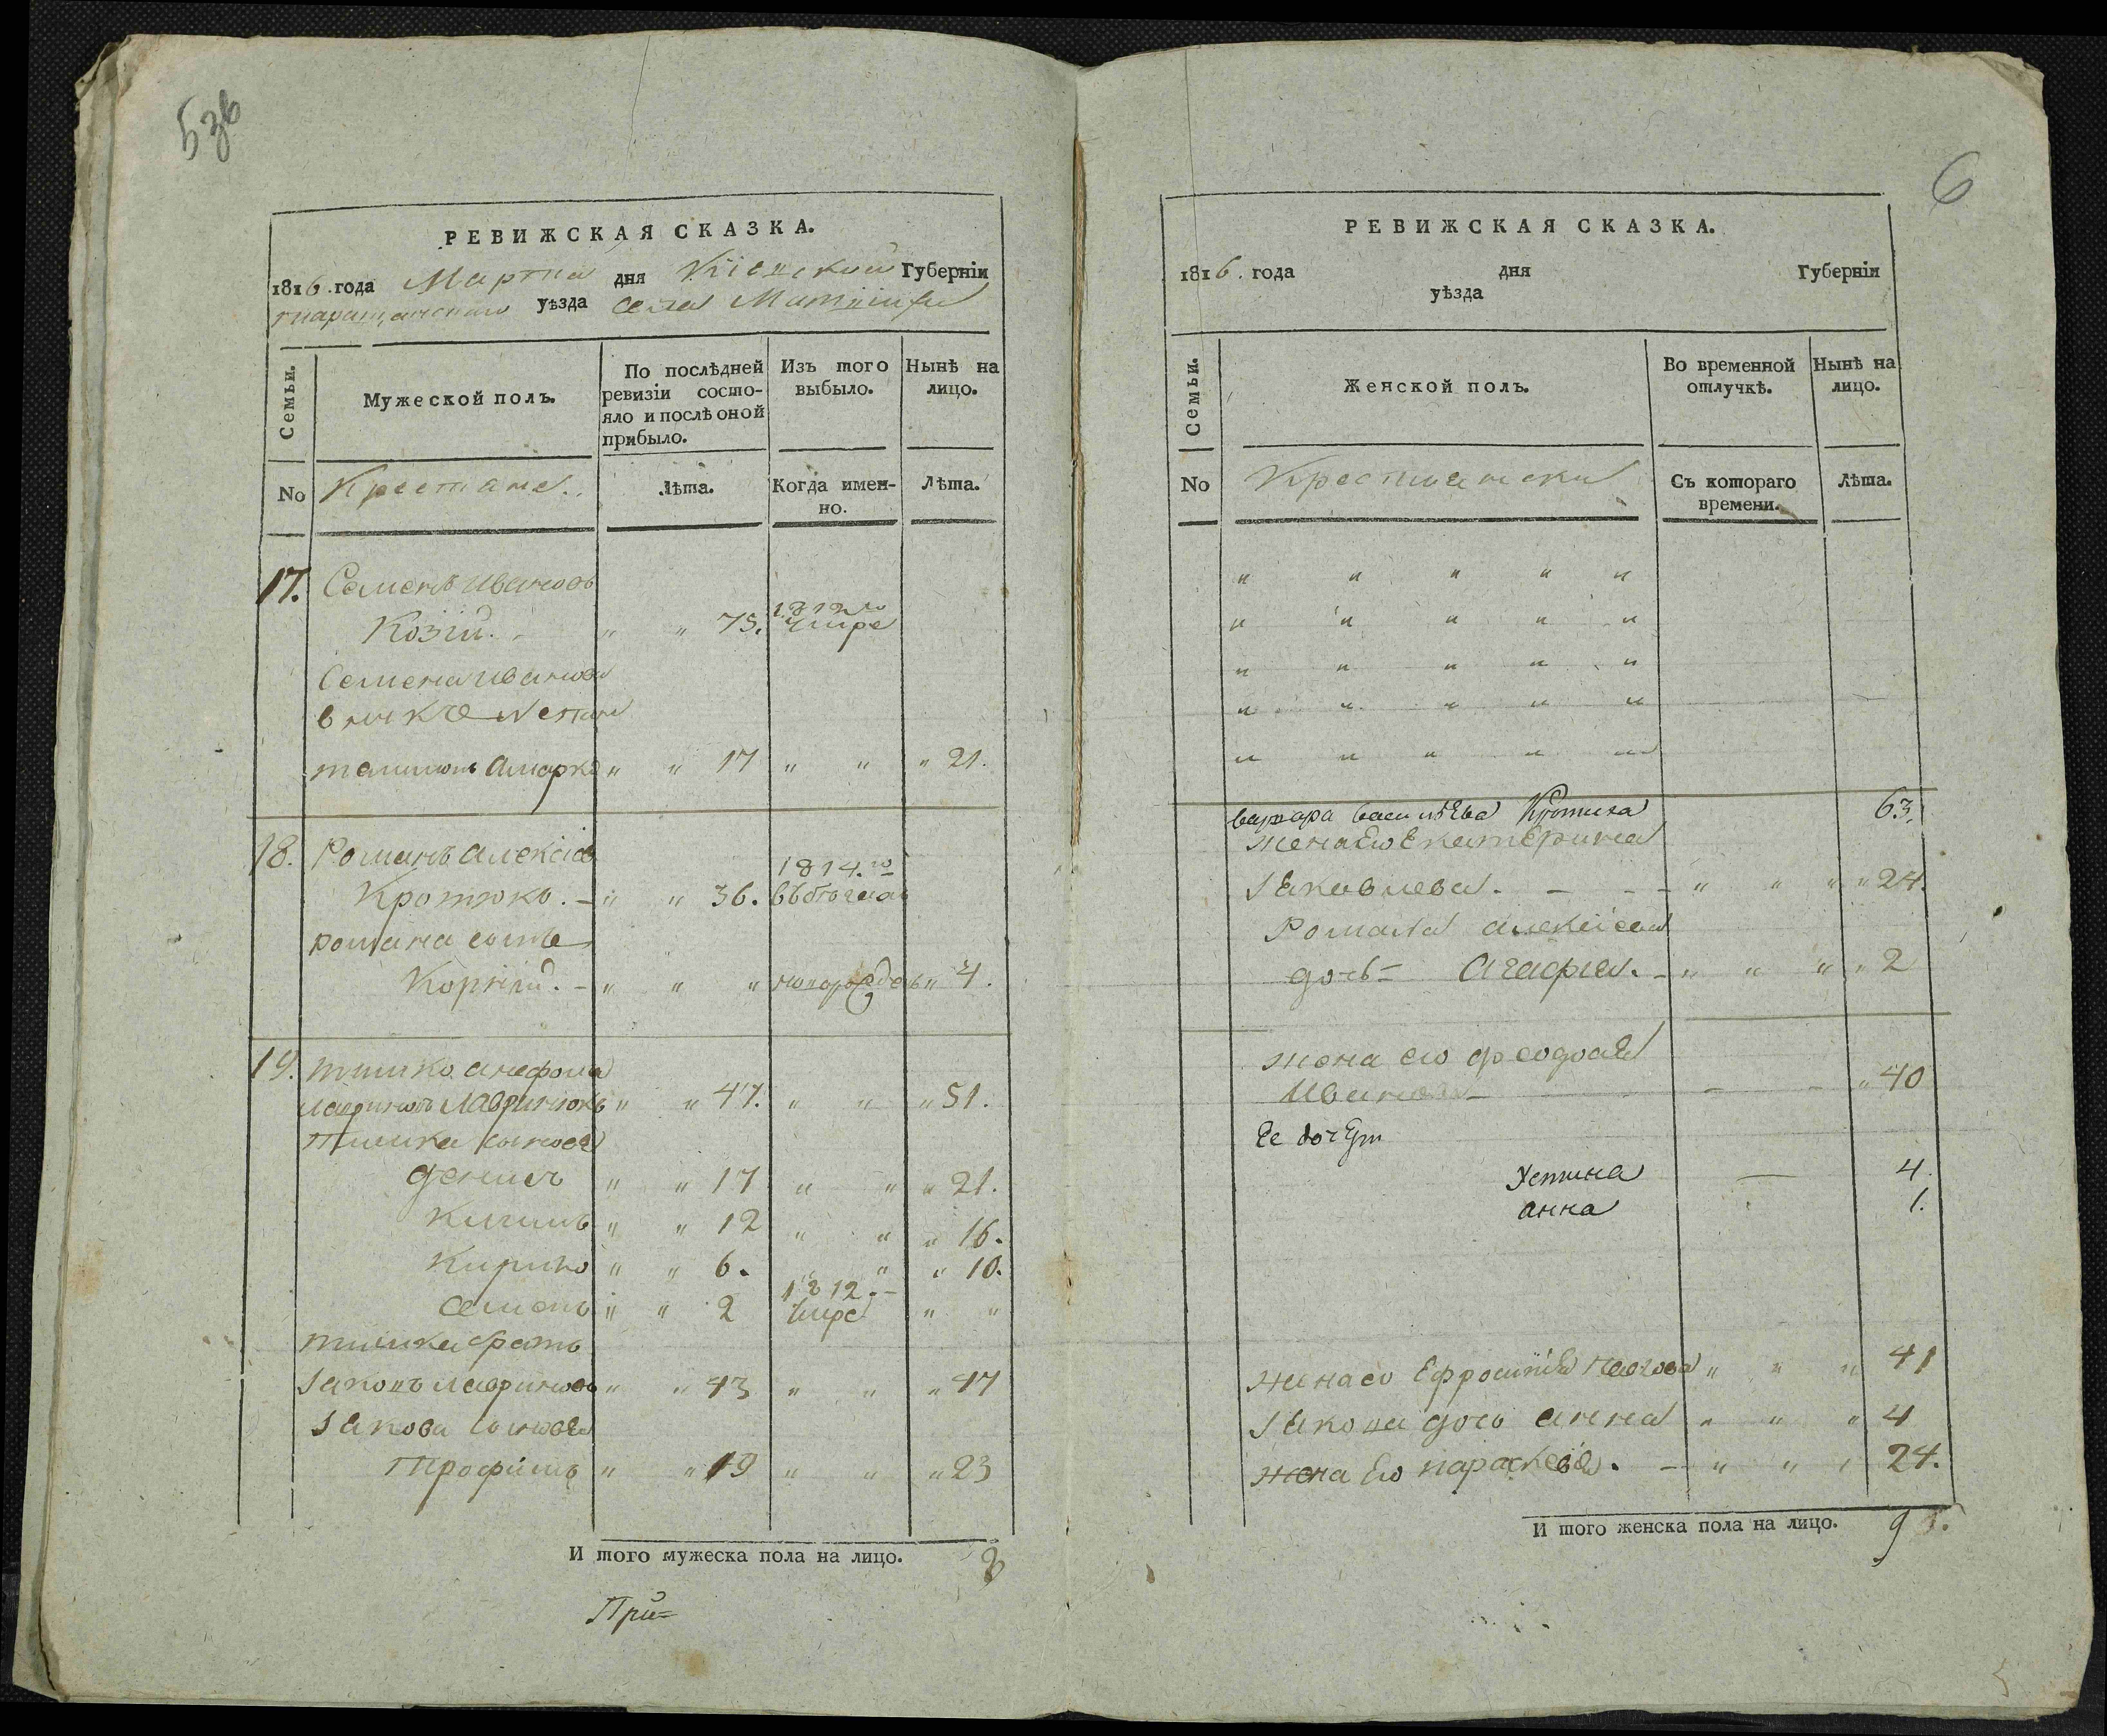 5зв
РЕВИЖСКАЯ СКАЗКА.
1816 года Марта дня Кіевской Губерніи
таращанского уѣзда села
Семьи.
Мужеской полъ.
По послѣдней ревизіи состо-
яло и послѣ оной прибыло.
Изъ того выбыло.
Нынѣ на лицо.
No
Лѣта.
Когда имен-
но.
Лѣта.
17. Семенъ Ивановъ
Козій. - " " 75. 1812го умре
Семена Иванова
внукъ
" " 17 " " " 21.
18. Романъ Алексіевъ
Кротюкъ. - " " 36. 1814.го
Романа сынъ
Корнѣй. - " " " новорожденъ " 4.
19. Тишко
Лавриновъ Лавринюкъ " " 47. " " " 51.
Тишка сыновя
Денисъ " " 17 " " " 21.
" " 12 " " " 16.
Кирило " " 6. " " " 10.
Семенъ " " 2 1812.- умре " "
Тишка братъ
Іаковъ Лавриновъ " " 43 " " " 47
Іакова сыновя
Трофимъ " " 19 " " " 23
И того мужеска пола на лицо. 8
При=
6
РЕВИЖСКАЯ СКАЗКА.
1816. года дня Губерніи
уѣзда
Семьи.
Женской полъ.
Во временной отлучкѣ.
Нынѣ на лицо.
No
Крестянски
Съ котораго времени.
Лѣта.
" " " " "
" " " " "
" " " " "
" " " " "
" " " " "
варвара василѣва 63.
жена его Екатерина
Іаковлева. - - - " " " " 24.
Романа Алексіева
дочь - Агафия. - " " " " 2
жена его феодосія
Иванова - - - " 40
Ее дочери
Устина — 4.
анна 1.
жена его Ефросинія " " " 41
Іакова дочь анна " " " 4
жена Его параскевія. - " " " 24.
И того женска пола на лицо. 9